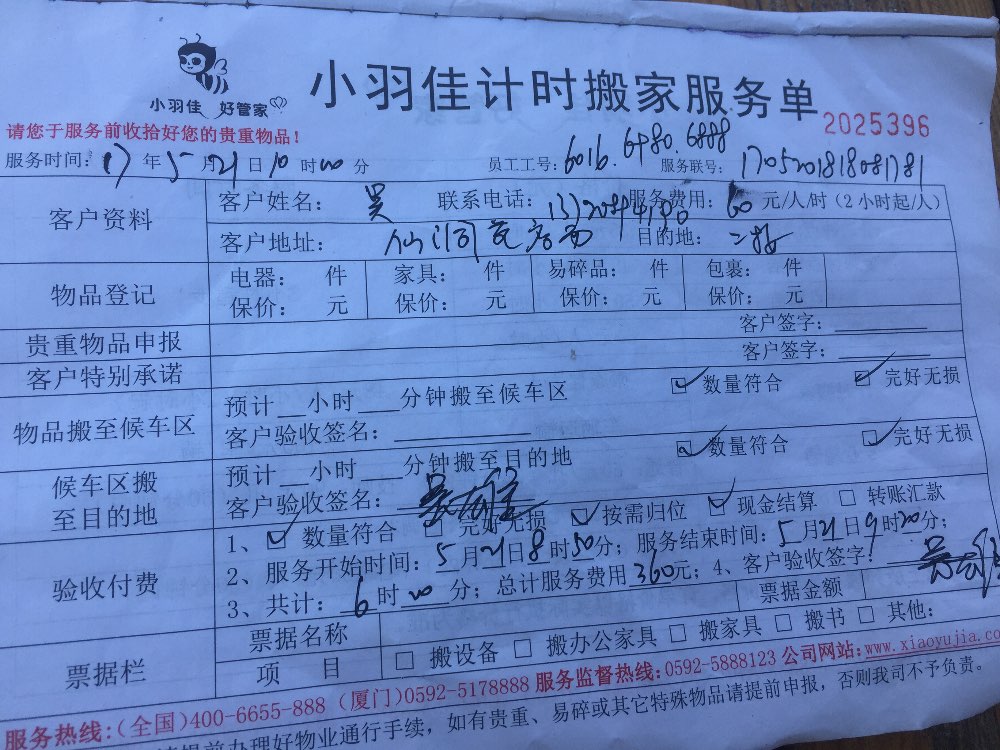 小羽佳 好管家
小羽佳计时搬家服务单
2025396
请您于服务前收拾好您的贵重物品!
服务时间: 17 年 5 月 21 日 10 时 00 分 员工工号: 6016. 6980. 6888 服务联号: 1705201818081781
客户资料
客户姓名: 吴 联系电话: 服务费用: 60 元/人/时 (2小时起/人)
客户地址: 目的地:
物品登记
电器: 件 家具: 件 易碎品: 件 包裹: 件
保价: 元 保价: 元 保价: 元 保价: 元
贵重物品申报 客户签字:
客户特别承诺 客户签字:
物品搬至候车区
预计__小时___分钟搬至候车区 ☑数量符合 ☑完好无损
客户验收签名:
候车区搬至目的地
预计__小时___分钟搬至目的地 ☑数量符合 ☑完好无损
客户验收签名:
验收付费
1、☑数量符合 □完好无损 ☑按需归位 ☑现金结算 □转账汇款
2、服务开始时间: 5 月 21 日 8 时 50 分; 服务结束时间: 5 月 21 日 9 时 20 分;
3、共计: 6 时 00 分; 总计服务费用 360 元; 4、客户验收签字:
票据栏
票据名称 票据金额
项 目 □搬设备 □搬办公家具 □搬家具 □搬书 □其他:
服务热线:(全国)400-6655-888 (厦门)0592-5178888 服务监督热线:0592-5888123 公司网站:www.xiaoyujia.co
提前办理好物业通行手续,如有贵重、易碎或其它特殊物品请提前申报,否则我司不予负责。